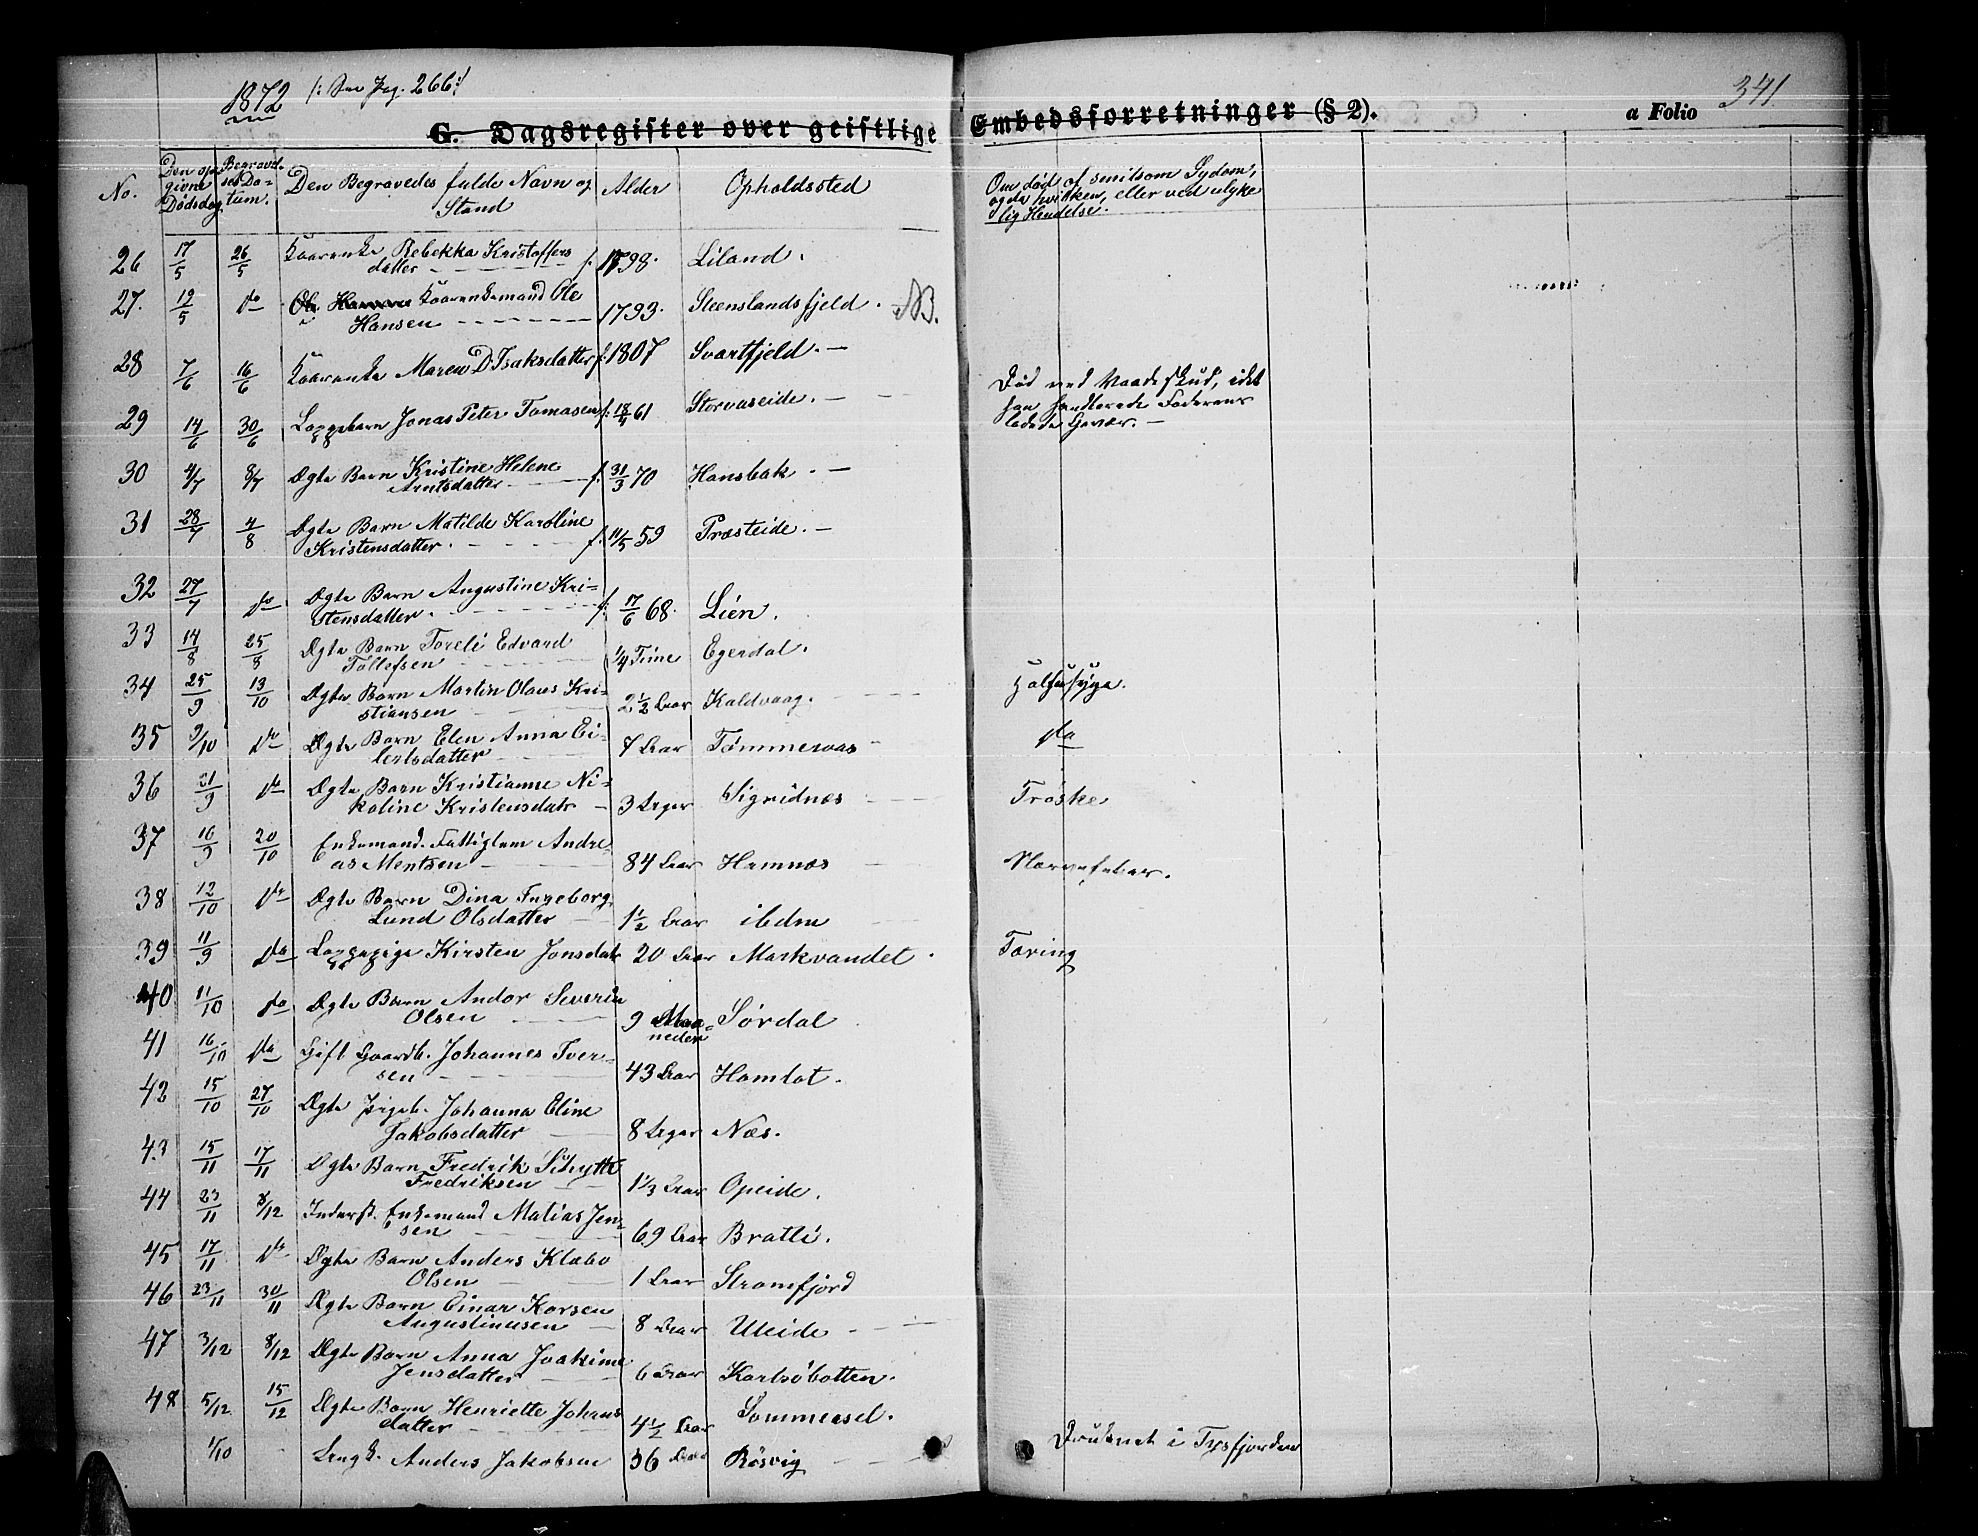 1872 /: Se Pag. 266 :/
341
G. Dagsregister over geistlige Embedsforretninger (§ 2).
a Folio
No. Den opgivne Dødsdag. Begravelses Datum. Den Begravedes fulde Navn og Stand Alder Opholdssted Om død af smitsom Sydom, og da hvilken, eller ved ulykkelig Hendelse.
26 17/5 26/5 Kaarenke Rebekka Kristoffers
datter f. 1798. Liland.
27. 19/5 do Kaarenkemand Ole
Hansen 1793. Steenslandsfjeld. NB.
28 7/6 16/6 Kaarenke Maren D. Isaksdatter f. 1807 Svartfjeld.
29 14/6 30/6 Lappebarn Jonas Peter Tomasen f. 18/4 61 Storvaseide. Død ved Vaadeskud, idet
han handterede Faderens
ladede Gevær.
30 4/7 8/7 Ægte Barn Kristine Helene
Arntsdatter f. 31/3 70 Hansbak.
31 28/7 4/8 Ægte Barn Matilde Karoline
Kristensdatter. f. 11/5 59 Præsteide.
32 27/7 do Ægte Barn Augustine Kri-
stensdatter. f. 17/6 68. Lien.
33 14/8 25/8 Ægte Barn Toreli Edvard
Tollefsen 1/4 Time Egerdal.
34 25/9 13/10 Ægte Barn Martin Olaus Kri-
stiansen 2 1/2 Aar Kaldvaag. Halsesyge.
35 9/10 do Ægte Barn Elen Anna Ei-
lertsdatter 7 Aar Tømmernæs do
36 21/9 do Ægte Barn Kristianne Ni-
koline Kristensdatr 3 Uger Sigridnæs Trøske
37 16/9 20/10 Enkemand. Fattiglem Andre-
as Mentsen 84 Aar Hamnæs Nervefeber.
38 12/10 do Ægte Barn Dina Ingeborg
Lund Olsdatter 1 1/2 Aar ibdm
39 11/9 do Lappepige Kirsten Jonsdatr 20 Aar Markvandet. Tæring
40 11/10 do Ægte Barn Andor Severin
Olsen 9 Maa-
neder Sørdal
41 16/10 do Gift Gaardb. Johannes Iver-
sen 43 Aar Hamlot.
42 15/10 27/10 Ægte Pigeb. Johanna Eline
Jakobsdatter 8 Uger Næs.
43 15/11 17/11 Ægte Barn Fredrik Schytte
Fredriksen 1 1/3 Aar Opeide.
44 23/11 8/12 Inderst. Enkemand Matias Jen-
sen 69 Aar Bratli.
45 17/11 do Ægte Barn Anders Klæbo
Olsen 1 Aar Strømfjord
46 23/11 30/11 Ægte Barn Einar Korsen
Augustinusen 8 Aar Uleide
47 3/12 8/12 Ægte Barn Anna Joakime
Jensdatter 6 Aar Karlsøbotten.
48 5/12 15/12 Ægte Barn Henriette Johans
datter 4 1/2 Aar Sommersel.
1/10 Ungk. Anders Jakobsen 36 Aar Røsvig Druknet i Tysfjorden